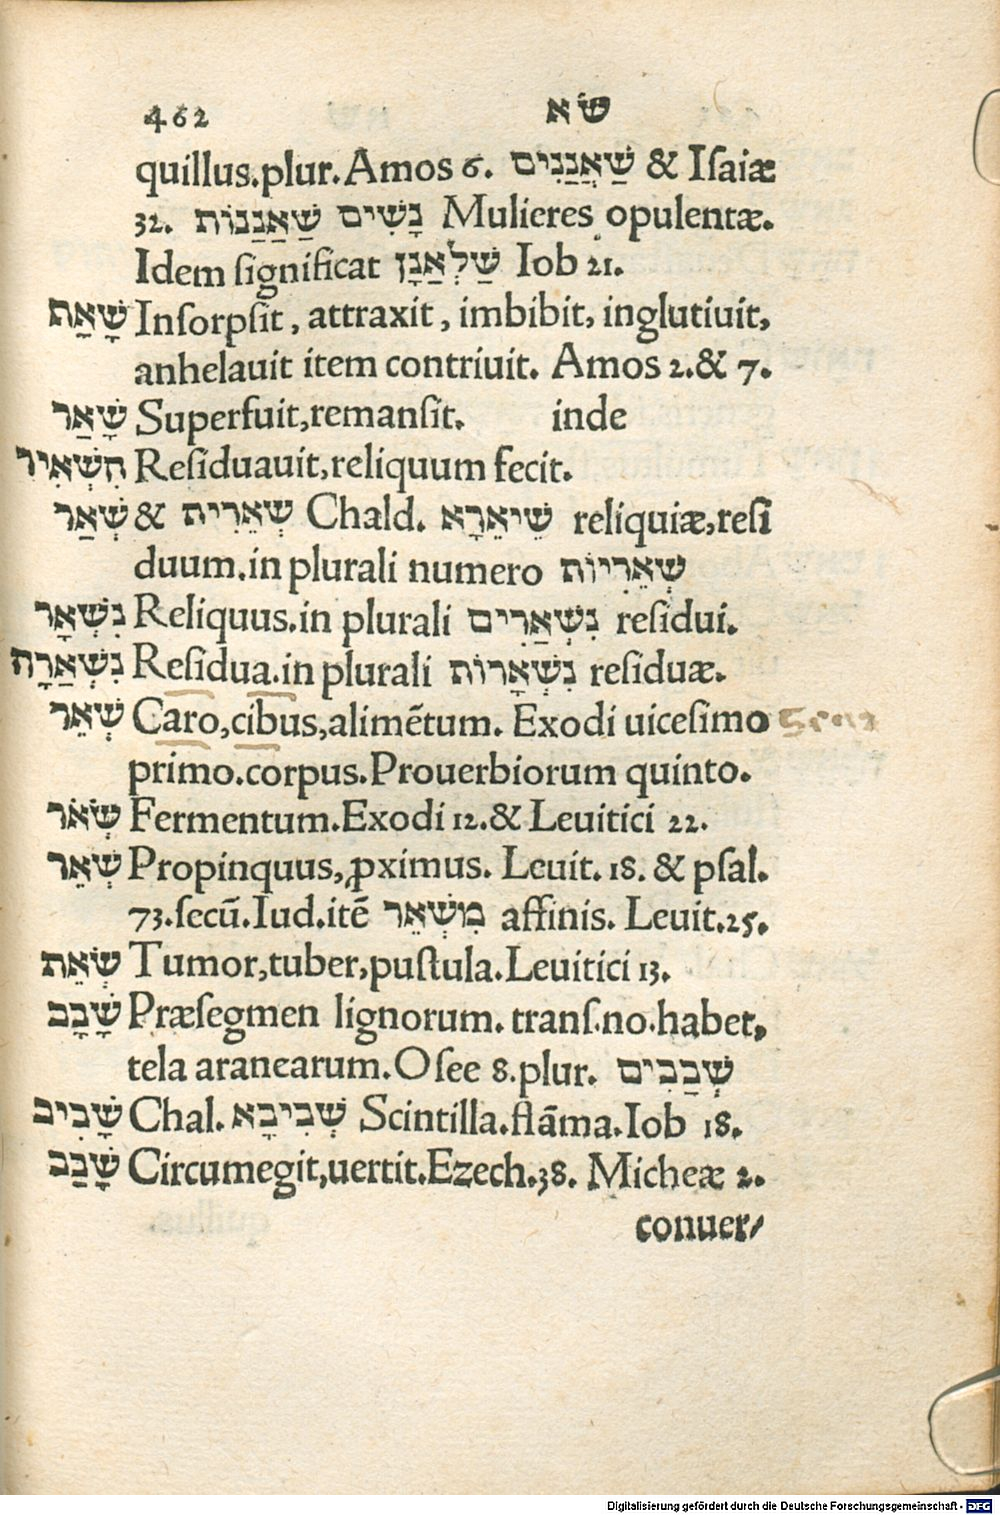 462 שׂא
quillus.plur.Amos 6. שַׁאֲנַנִּים & Iſaiæ
32. נָשִׁים שַׁאֲנַנּוֹת Mulieres opulentæ.
Idem ſignificat שַׁלְאֲנָן Iob 21.
שָׁאַת Inſorpſit, attraxit, imbibit, inglutiuit,
anhelauit item contriuit. Amos 2.& 7.
שָׁאַר Superfuit,remanſit. inde
הִשְׁאִיר Reſiduauit,reliquum fecit.
שְׁאַר & שְׁאֵרִית Chald. שֵׁיאֵרָא reliquiæ,reſi
duum.in plurali numero שְׁאֵרִיוֹת
נִשְׁאָר Reliquus.in plurali נִשְׁאַרִים reſidui.
נִשְׁאַרָה Reſidua.in plurali נִשְׁאָרוֹת reſiduæ.
שְׁאֵר Caro,cibus,alimētum. Exodi uiceſimo
primo.corpus.Prouerbiorum quinto.
שְׂאֹר Fermentum.Exodi 12.& Leuitici 22.
שְׁאֵר Propinquus,ꝓximus. Leuit. 18. & pſal.
73.ſecū.Iud.itē מִשְׁאֵר affinis. Leuit.25.
שְׂאֵת Tumor,tuber,puſtula.Leuitici 13.
שָׁבָב Præſegmen lignorum.tranſ.no.habet,
tela aranearum.Oſee 8.plur. שְׁבָבִים
שָׁבִיב Chal. שְׁבִיבָא Scintilla.flāma.Iob 18.
שָׁבַב Circumegit,uertit.Ezech.38. Micheæ 2.
conuer/
Digitalisierung gefördert durch die Deutsche Forschungsgemeinschaft - DFG